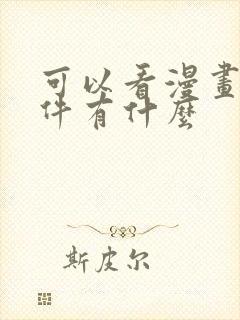 可以看漫畫
件有什麼
斯皮尔